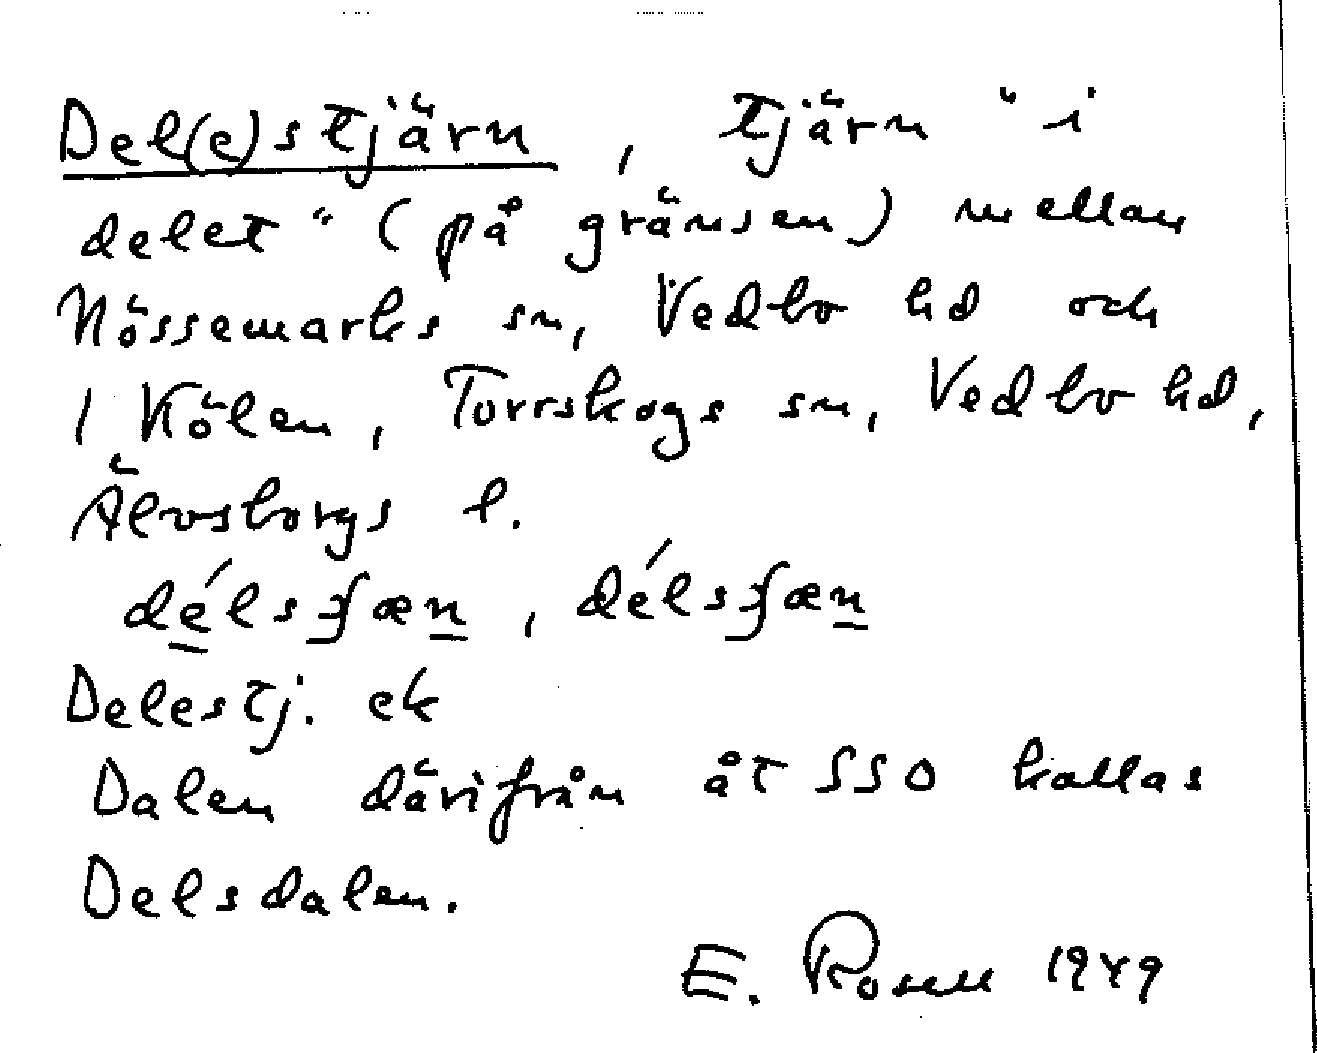 Del(e)stjärn, tjärn "i
delet" (på gränsen) mellan
Nössemarks sn, Vedbo hd och
1 Kölen, Torrskogs sn, Vedbo hd,
Älvsborgs l.
Delestj. ek
Dalen därifrån åt SSO kallas
Delsdalen.
E. Rosell 1949